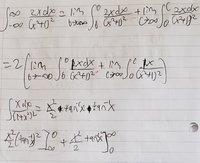 ∫_{-∞}^{∞} 2xdx/(x²+1)² = lim_{b→-∞} ∫_b^0 2xdx/(x²+1)² + lim_{c→∞} ∫_0^c 2xdx/(x²+1)²
= 2( lim_{b→-∞} ∫_b^0 xdx/(x²+1)² + lim_{c→∞} ∫_0^c x/(x²+1)² )
∫ xdx/(1+x²)² = x²/2 tan⁻¹x tan⁻¹x
x²/2 (tan⁻¹x)² ]^0 + x²/2 tan⁻¹x ]_0^∞